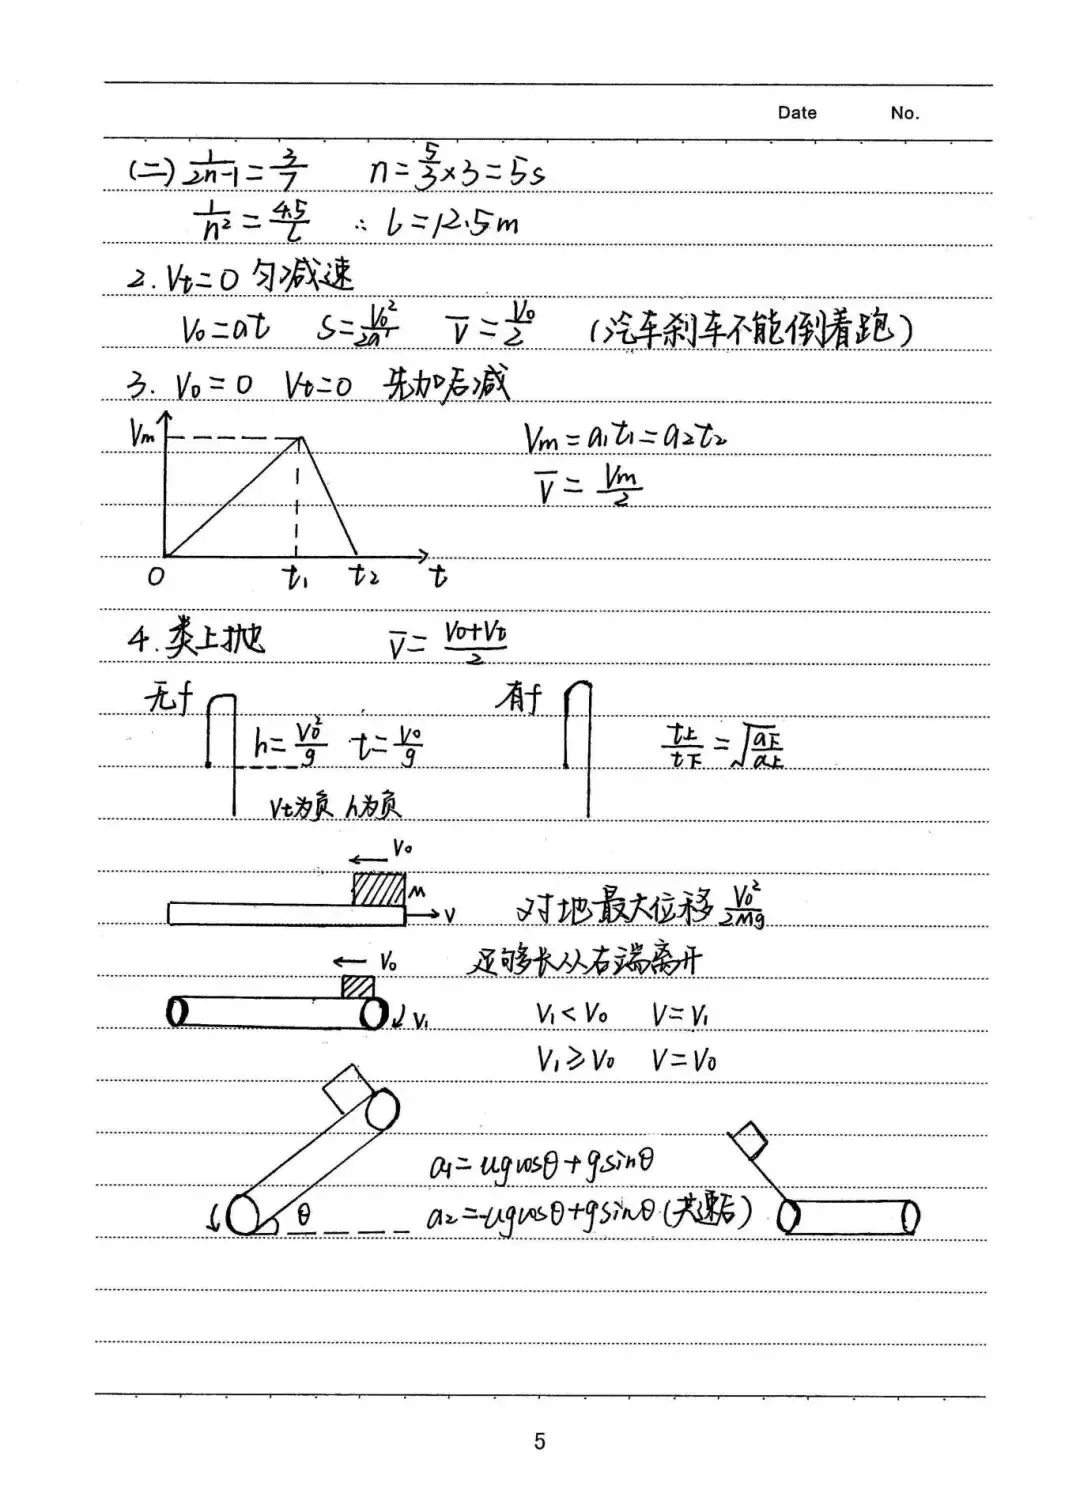 Date No.
(二) 1/(2n-1) = 3/7 n = 5/3 × 3 = 5s
1/n² = 4.5/L ∴ L = 12.5m
2. Vt = 0 匀减速
V₀ = at S = V₀²/2a V̄ = V₀/2 (汽车刹车不能倒着跑)
3. V₀ = 0 Vt = 0 先加后减
Vm
Vm = a₁t₁ = a₂t₂
V̄ = Vm/2
0 t₁ t₂ t
4. 类上抛 V̄ = (V₀+Vt)/2
无f 有f
h = V₀²/g t = V₀/g t上/t下 = √(a下/a上)
Vt为负 h为负
V₀
M V 对地最大位移 V₀²/2Mg
V₀ 足够长从右端离开
V₁ V₁ < V₀ V = V₁
V₁ ≥ V₀ V = V₀
a₁ = ugcosθ + gsinθ
θ a₂ = -ugcosθ + gsinθ (共速后)
5